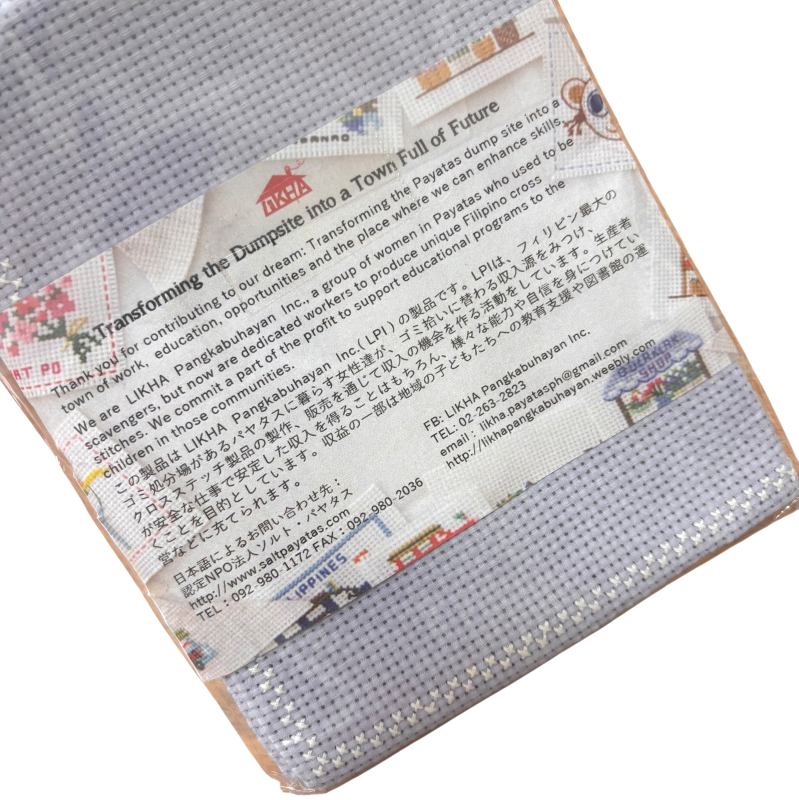 LIKHA
Transforming the Dumpsite into a Town Full of Future
Thank you for contributing to our dream: Transforming the Payatas dump site into a
town of work, education, opportunities and the place where we can enhance skills.
We are LIKHA Pangkabuhayan Inc., a group of women in Payatas who used to be
scavengers, but now are dedicated workers to produce unique Filipino cross
stitches. We commit a part of the profit to support educational programs to the
children in those communities.
この製品は LIKHA Pangkabuhayan Inc.(LPI)の製品です。LPIは、フィリピン最大の
ゴミ処分場があるパヤタスに暮らす女性達が、ゴミ拾いに替わる収入源をみつけ、
クロスステッチ製品の製作、販売を通じて収入の機会を作る活動をしています。生産者
が安全な仕事で安定した収入を得ることはもちろん、様々な能力や自信を身につけてい
くことを目的としています。収益の一部は地域の子どもたちへの教育支援や図書館の運
営などに充てられます。
日本語によるお問い合わせ先：
認定NPO法人ソルト・パヤタス
http://www.saltpayatas.com
TEL：092-980-1172 FAX：092-980-2036
FB: LIKHA Pangkabuhayan Inc.
TEL: 02-263-2823
email : likha.payatasph@gmail.com
http://likhapangkabuhayan.weebly.com
SHOP
IPPINES
RT PO